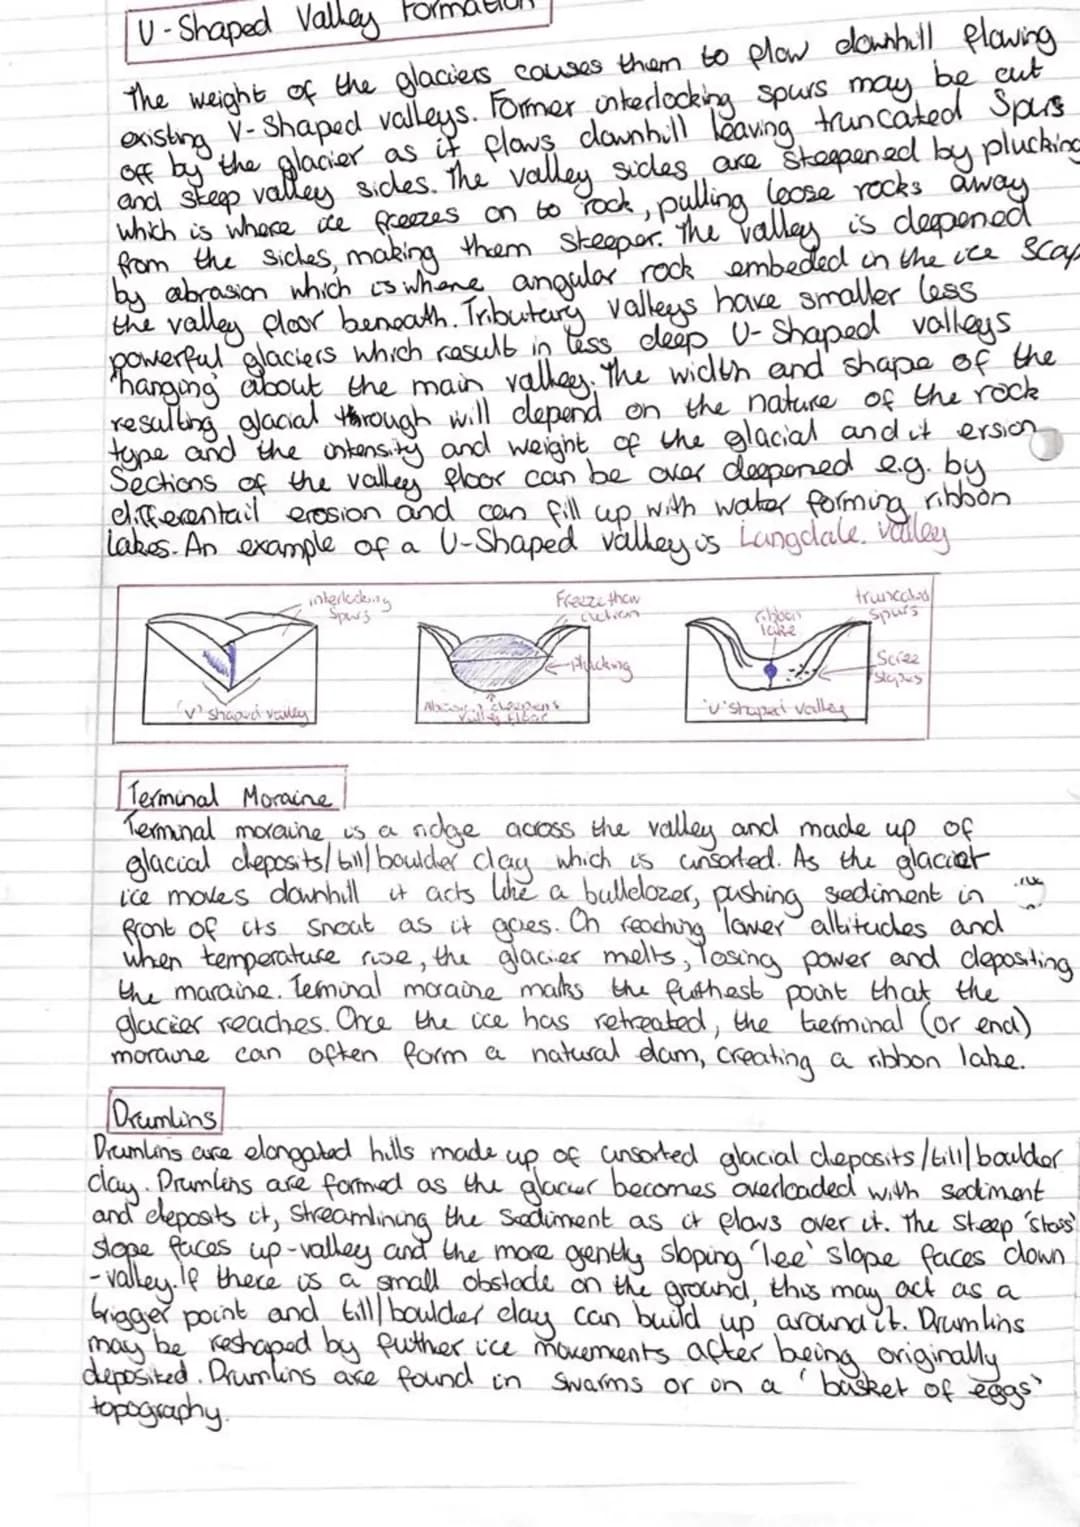 U-Shaped Valley Formation
The weight of the glaciers causes them to flow downhill flowing
existing V-Shaped valleys. Former interlocking spurs may be cut
off by the glacier as it flows downhill leaving truncated Spurs
and steep valley sides. The valley sides are steepened by plucking
which is where ice freezes on to rock, pulling loose rocks away
from the sides, making them steeper. The valley is deepened
by abrasion which is where angular rock embeded in the ice Scap
the valley floor beneath. Tributary valleys have smaller less
powerful glaciers which result in less deep U-Shaped valleys
'hanging' about the main valley. The width and shape of the
resulting glacial through will depend on the nature of the rock
type and the intensity and weight of the glacial and it ersion
Sections of the valley floor can be over deepened e.g. by
differentail erosion and can fill up with water forming ribbon
lakes. An example of a U-Shaped valley is Langdale Valley
interlocking
Spurs
'V' shaped valley
Freeze thaw
action
Plucking
deepens
valley floor
ribbon
lake
truncated
spurs
Scree
slopes
'U' shaped valley
Terminal Moraine
Terminal moraine is a ridge across the valley and made up of
glacial deposits/till/boulder clay which is unsorted. As the glacier
ice moves downhill it acts like a bulldozer, pushing sediment in
front of its snout as it goes. On reaching lower altitudes and
when temperature rise, the glacier melts, losing power and depositing
the maraine. Teminal moraine maks the futhest point that the
glacier reaches. Once the ice has retreated, the terminal (or end)
moraine can often form a natural dam, creating a ribbon lake.
Drumlins
Drumlins are elongated hills made up of unsorted glacial deposits/till/boulder
clay. Drumlins are formed as the glacier becomes overloaded with sediment
and deposits it, streamlining the sediment as it flows over it. The steep 'stoss'
slope faces up-valley and the more gently sloping 'lee' slope faces down
-valley. If there is a small obstacle on the ground, this may act as a
trigger point and till/boulder clay can build up around it. Drumlins
may be reshaped by futher ice movements after being originally
deposited. Drumlins are found in swarms or on a 'basket of eggs'
topography.